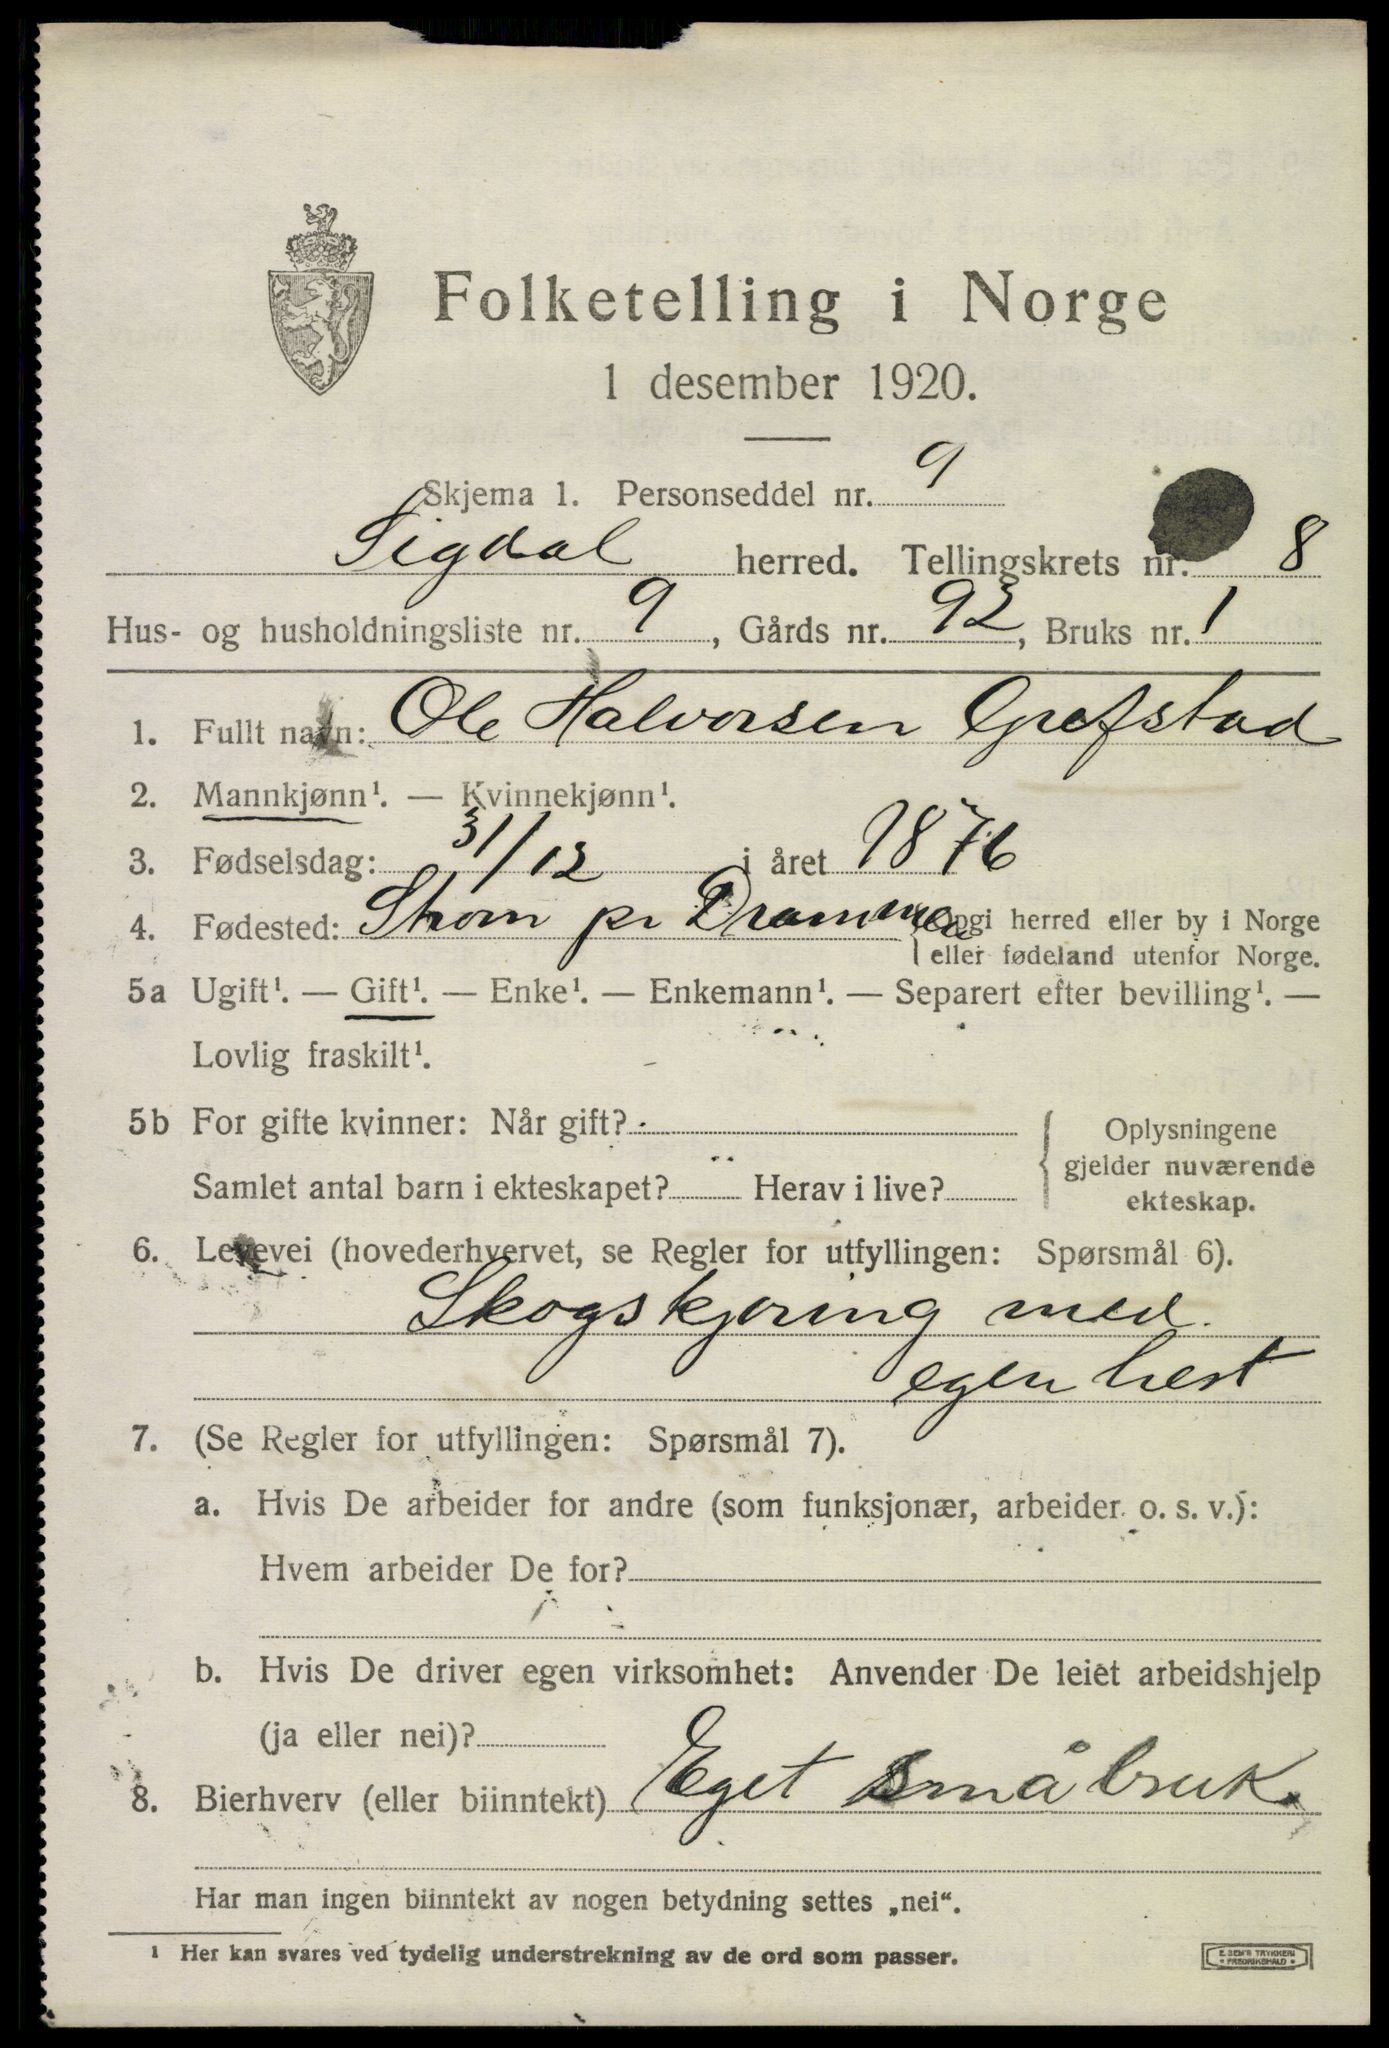 Folketelling i Norge
1 desember 1920.
Skjema 1. Personseddel nr. 9
Sigdal herred. Tellingskrets nr. 8
Hus- og husholdningsliste nr. 9, Gårds nr. 92, Bruks nr. 1
1. Fullt navn: Ole Halvorsen Grefstad
2. Mannkjønn¹. — Kvinnekjønn¹.
3. Fødselsdag: 31/12 i året 1876
4. Fødested: Strøm pr Drammen
opgi herred eller by i Norge
eller fødeland utenfor Norge.
5a Ugift¹. — Gift¹. — Enke¹. — Enkemann¹. — Separert efter bevilling¹. —
Lovlig fraskilt¹.
5b For gifte kvinner: Når gift?
Samlet antal barn i ekteskapet? Herav i live?
Oplysningene
gjelder nuværende
ekteskap.
6. Levevei (hovederhvervet, se Regler for utfyllingen: Spørsmål 6).
Skogskjøring med
egen hest
7. (Se Regler for utfyllingen: Spørsmål 7).
a. Hvis De arbeider for andre (som funksjonær, arbeider o. s. v.):
Hvem arbeider De for?
b. Hvis De driver egen virksomhet: Anvender De leiet arbeidshjelp
(ja eller nei)?
8. Bierhverv (eller biinntekt) Eget småbruk.
Har man ingen biinntekt av nogen betydning settes „nei“.
¹ Her kan svares ved tydelig understrekning av de ord som passer.
E. SEM'S TRYKKERI
FREDRIKSHALD